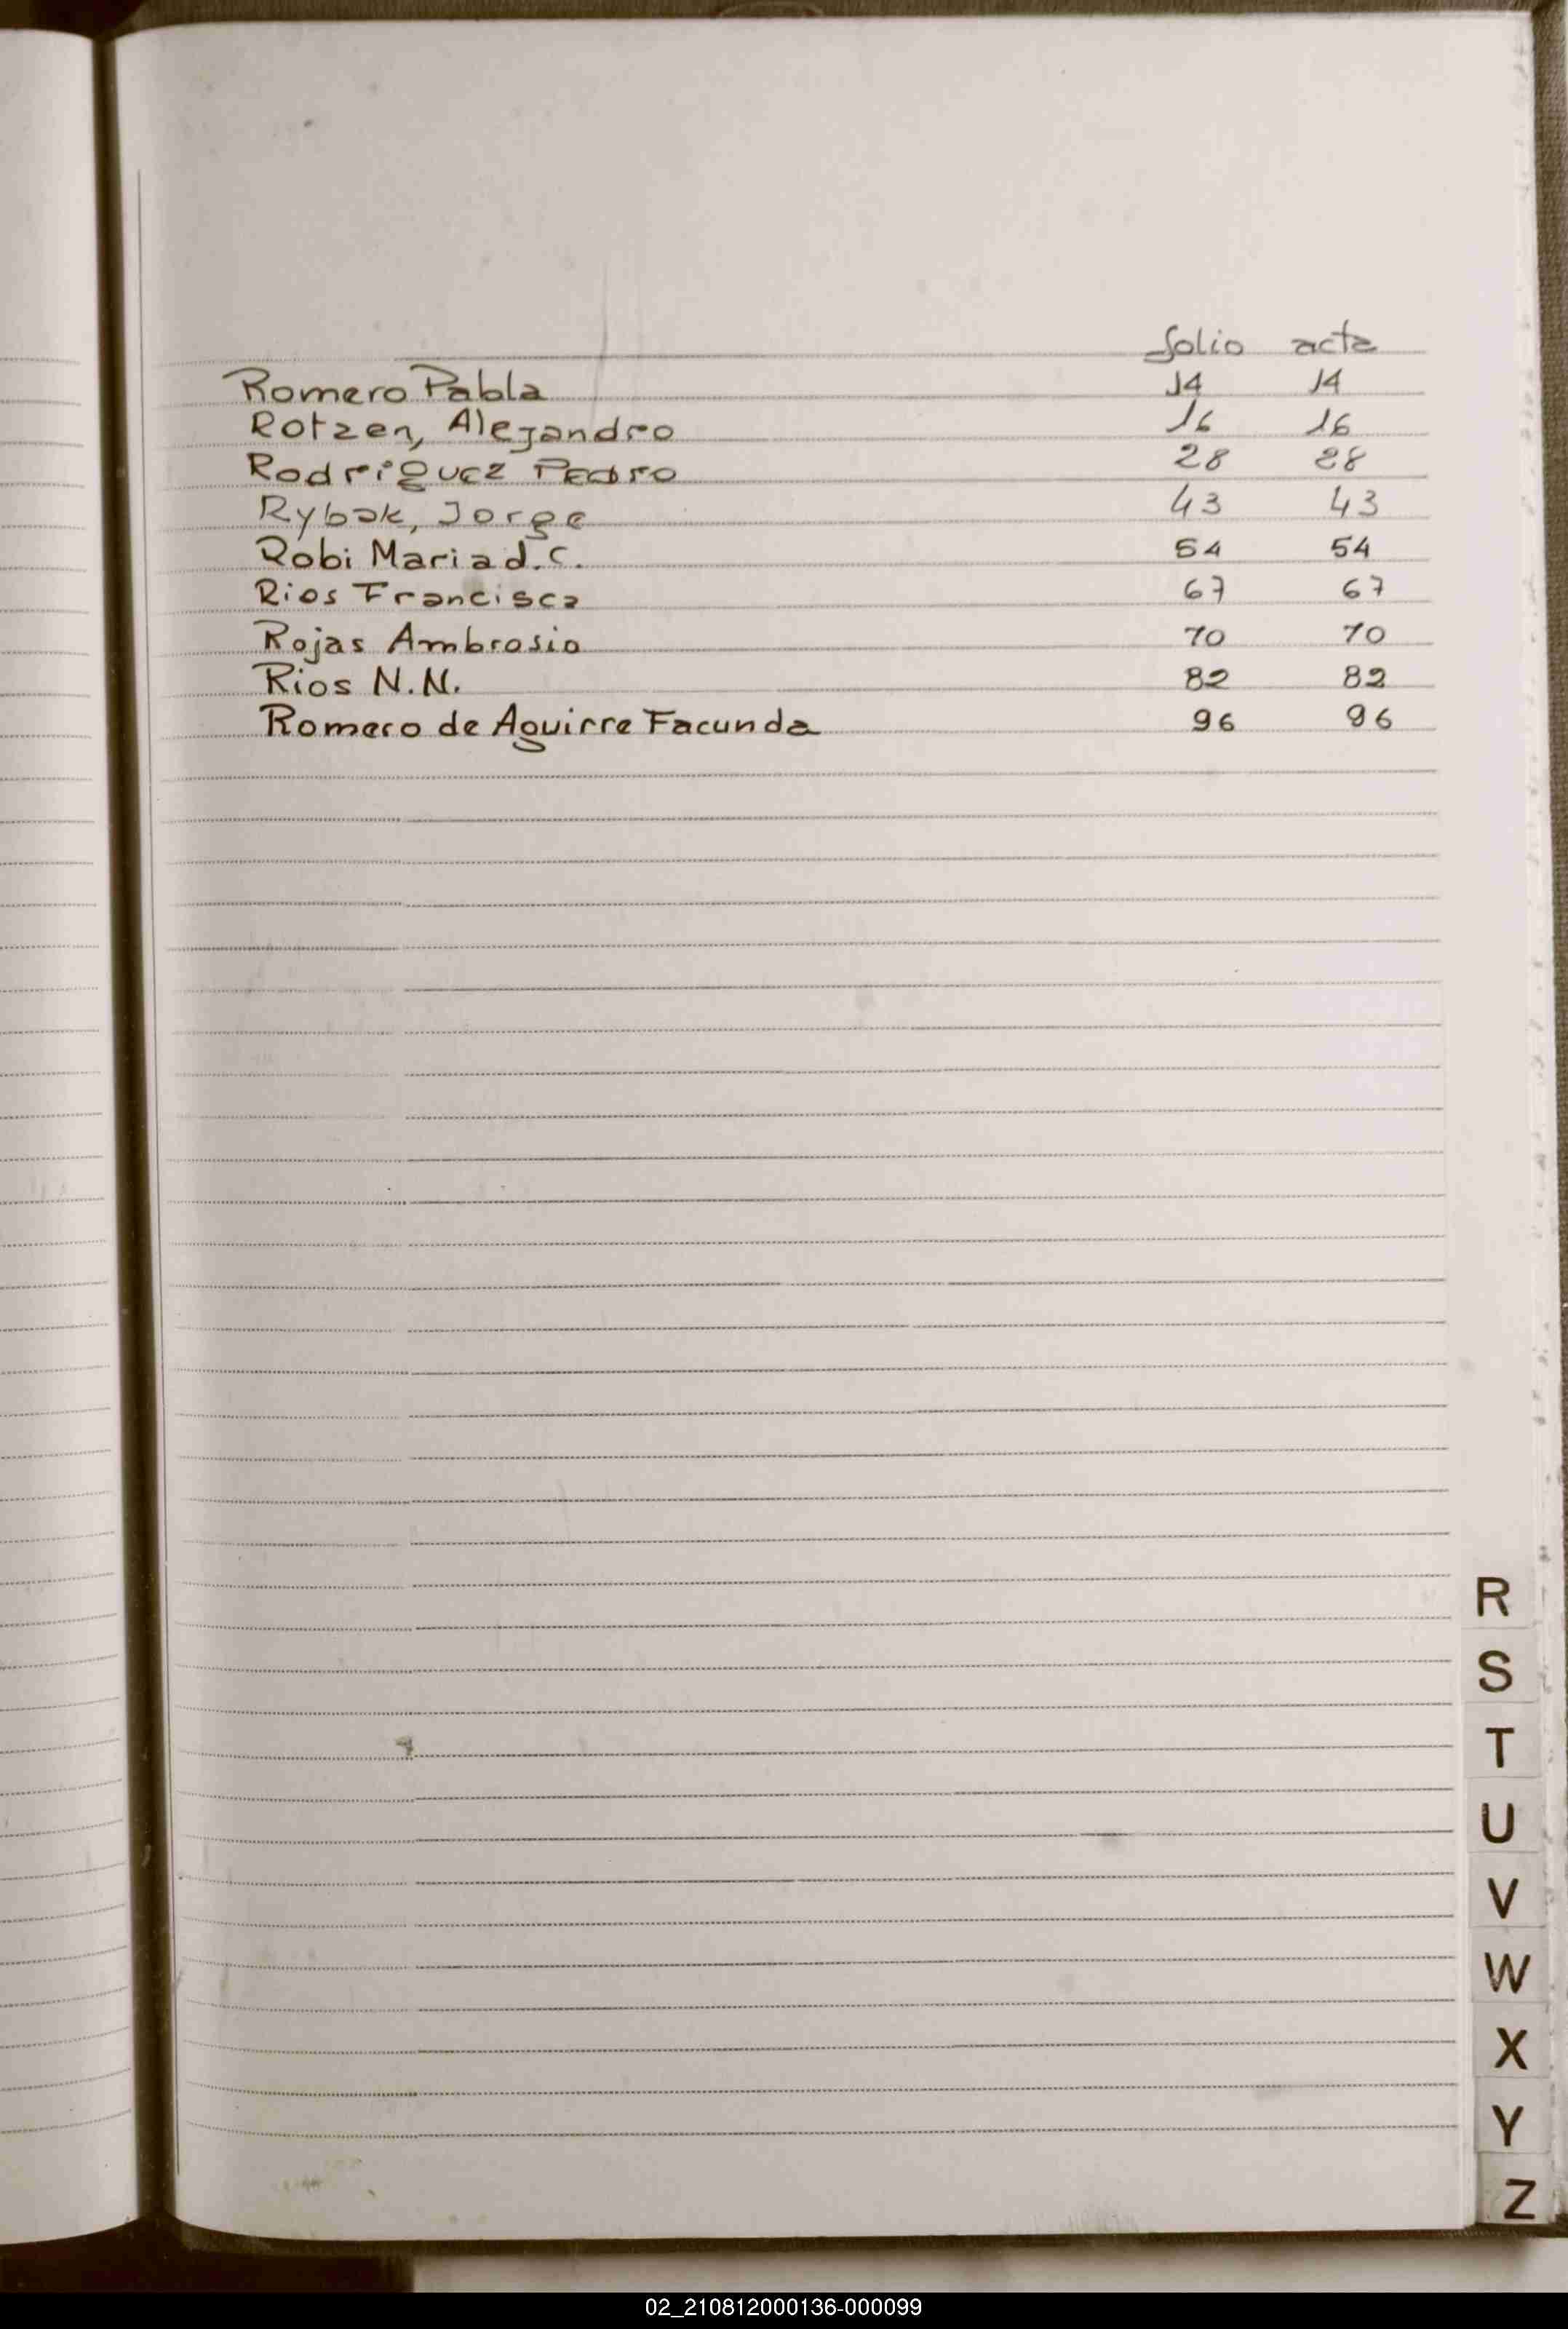 folio acta
Romero Pabla 14 14
Rotzen, Alejandro 16 16
Rodriguez Pedro 28 28
Rybak, Jorge 43 43
Robi Maria d. C. 54 54
Rios Francisca 67 67
Rojas Ambrosio 70 70
Rios N.N. 82 82
Romero de Aguirre Facunda 96 96
R
S
T
U
V
W
X
Y
Z
02_210812000136-000099